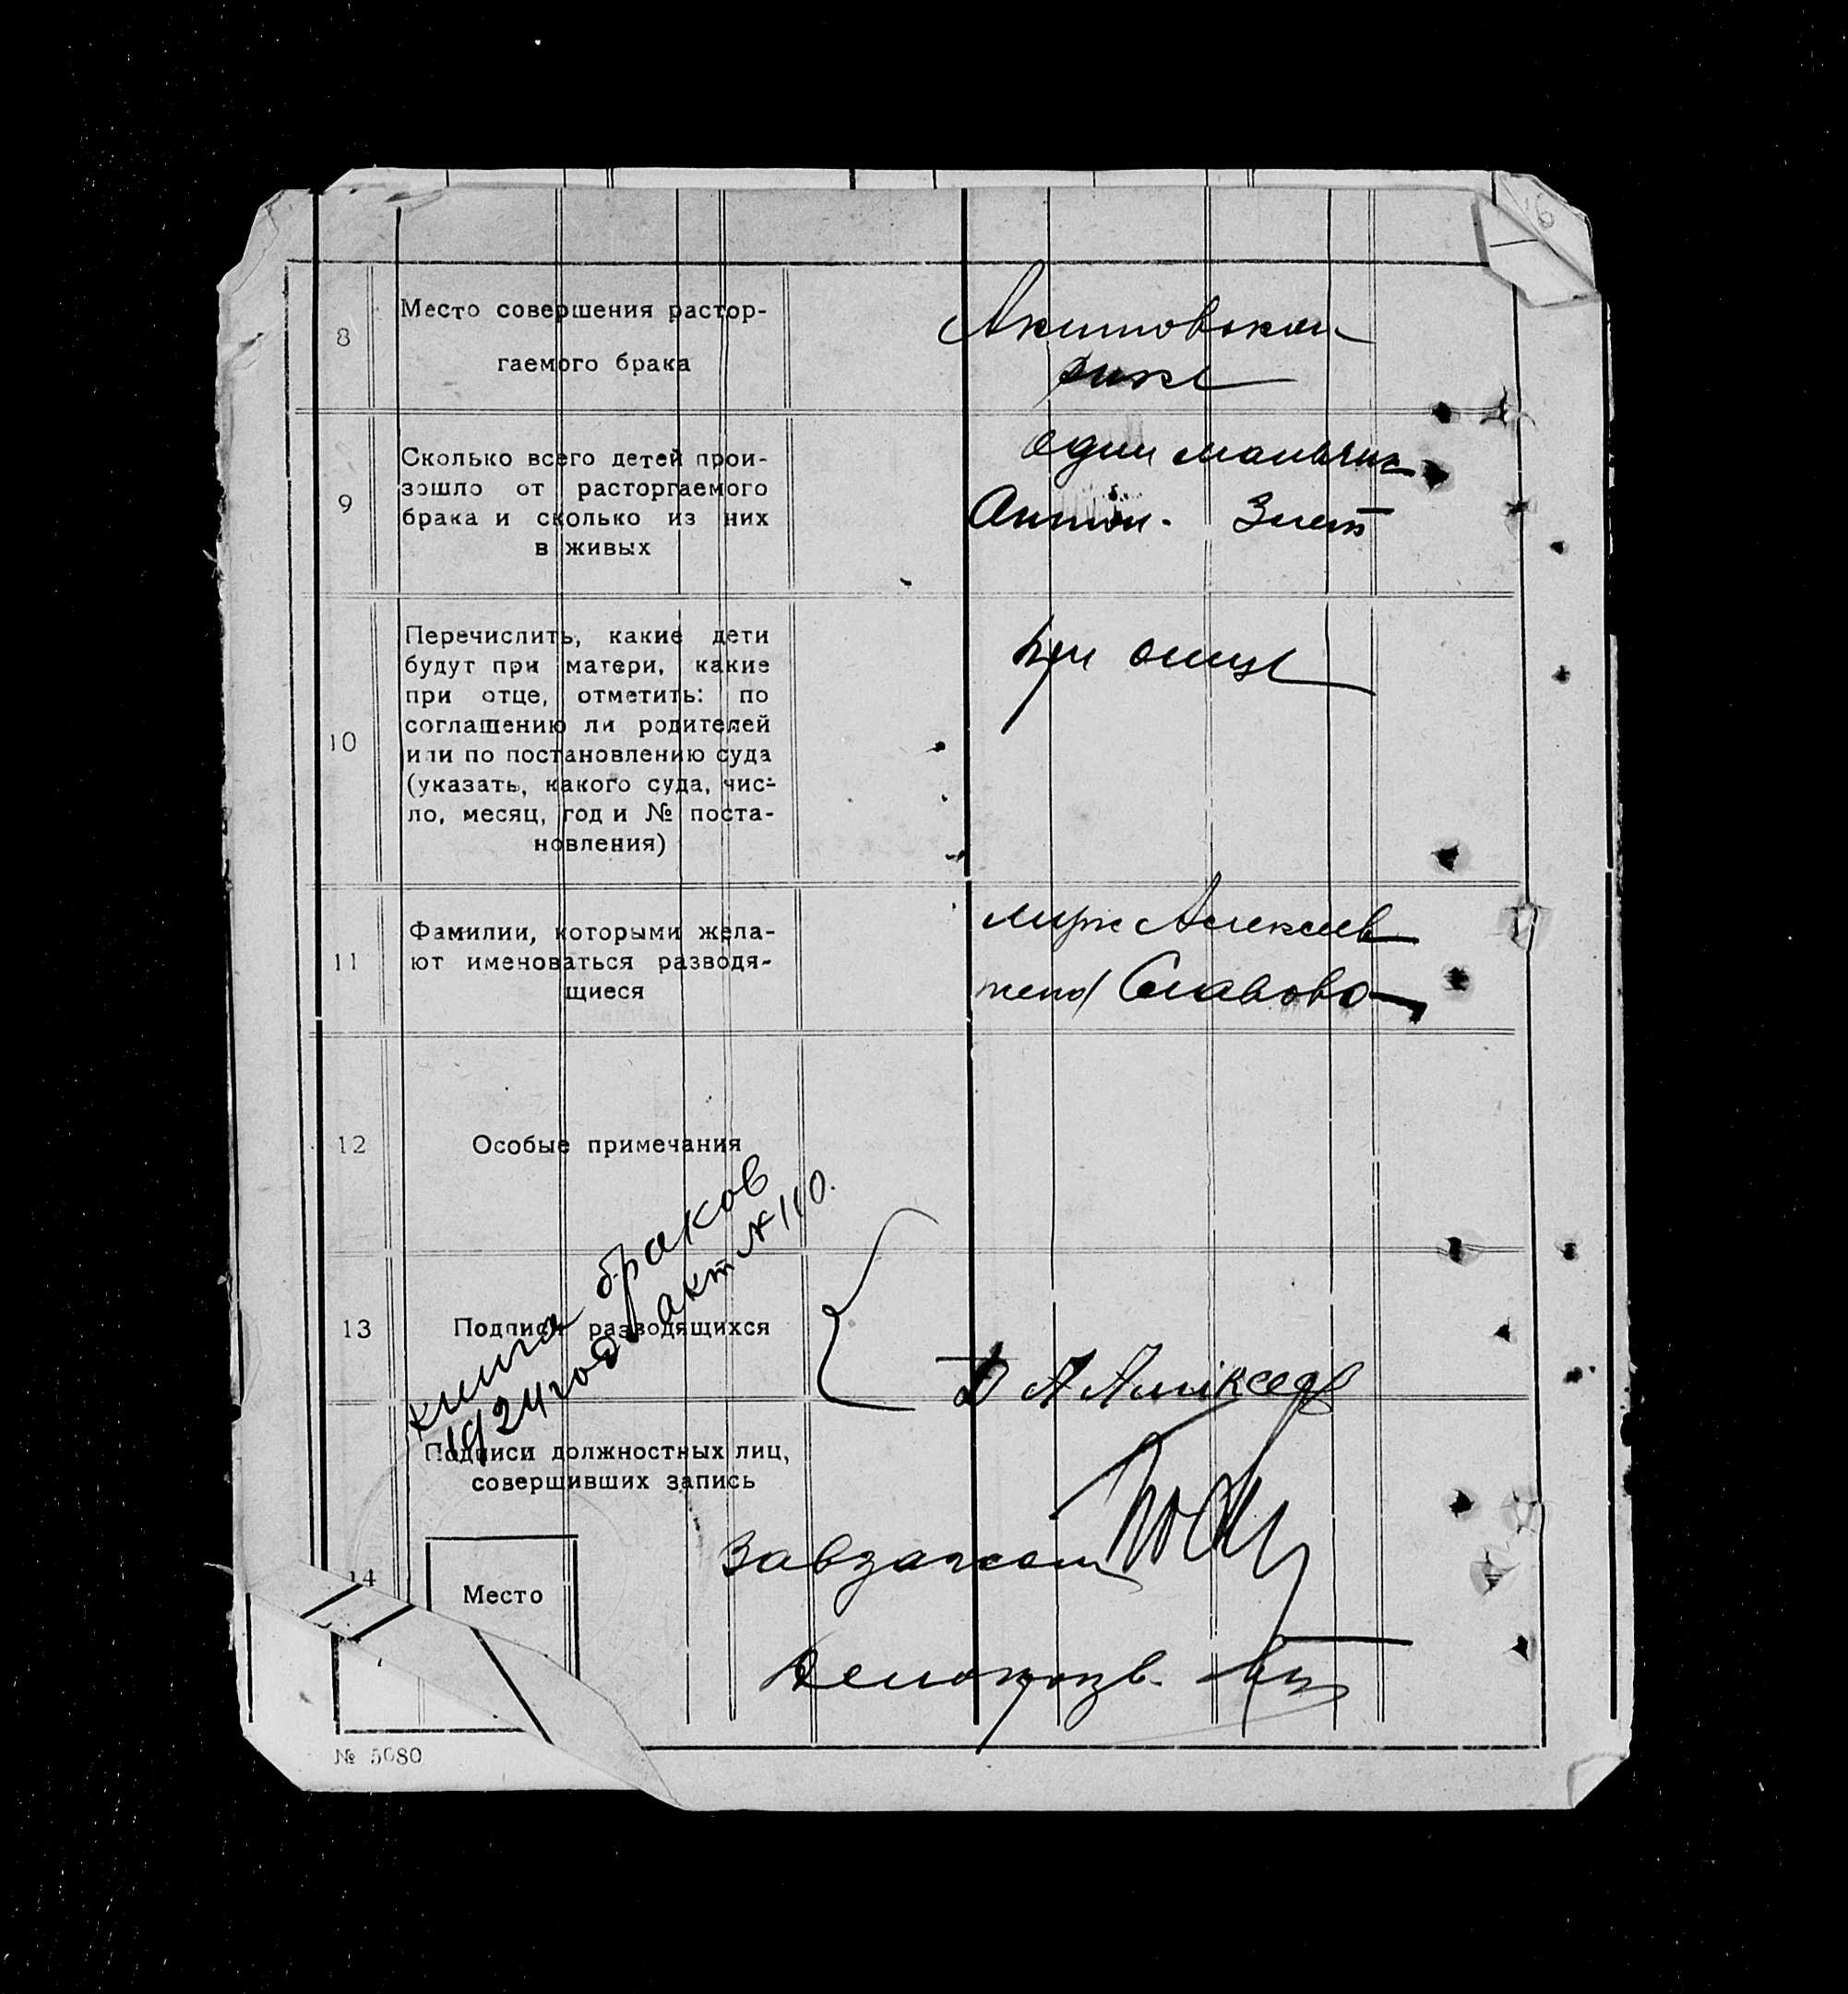 16
8
Место совершения растор-
гаемого брака
9
Сколько всего детей прои-
зошло от расторгаемого
брака и сколько из них
в живых
один мальчик
Антон. 3 лет
10
Перечислить, какие дети
будут при матери, какие
при отце, отметить: по
соглашению ли родителей
или по постановлению суда
(указать, какого суда, чис-
ло, месяц, год и № поста-
новления)
при отце
11
Фамилии, которыми жела-
ют именоваться разводя-
щиеся
муж Алексеев
жена
12
Особые примечания
книга браков
1924 год акт № 110.
13
Подписи разводящихся
14
Подписи должностных лиц,
совершивших запись
Завзагсом
Место
Делопроизв.
№ 5080